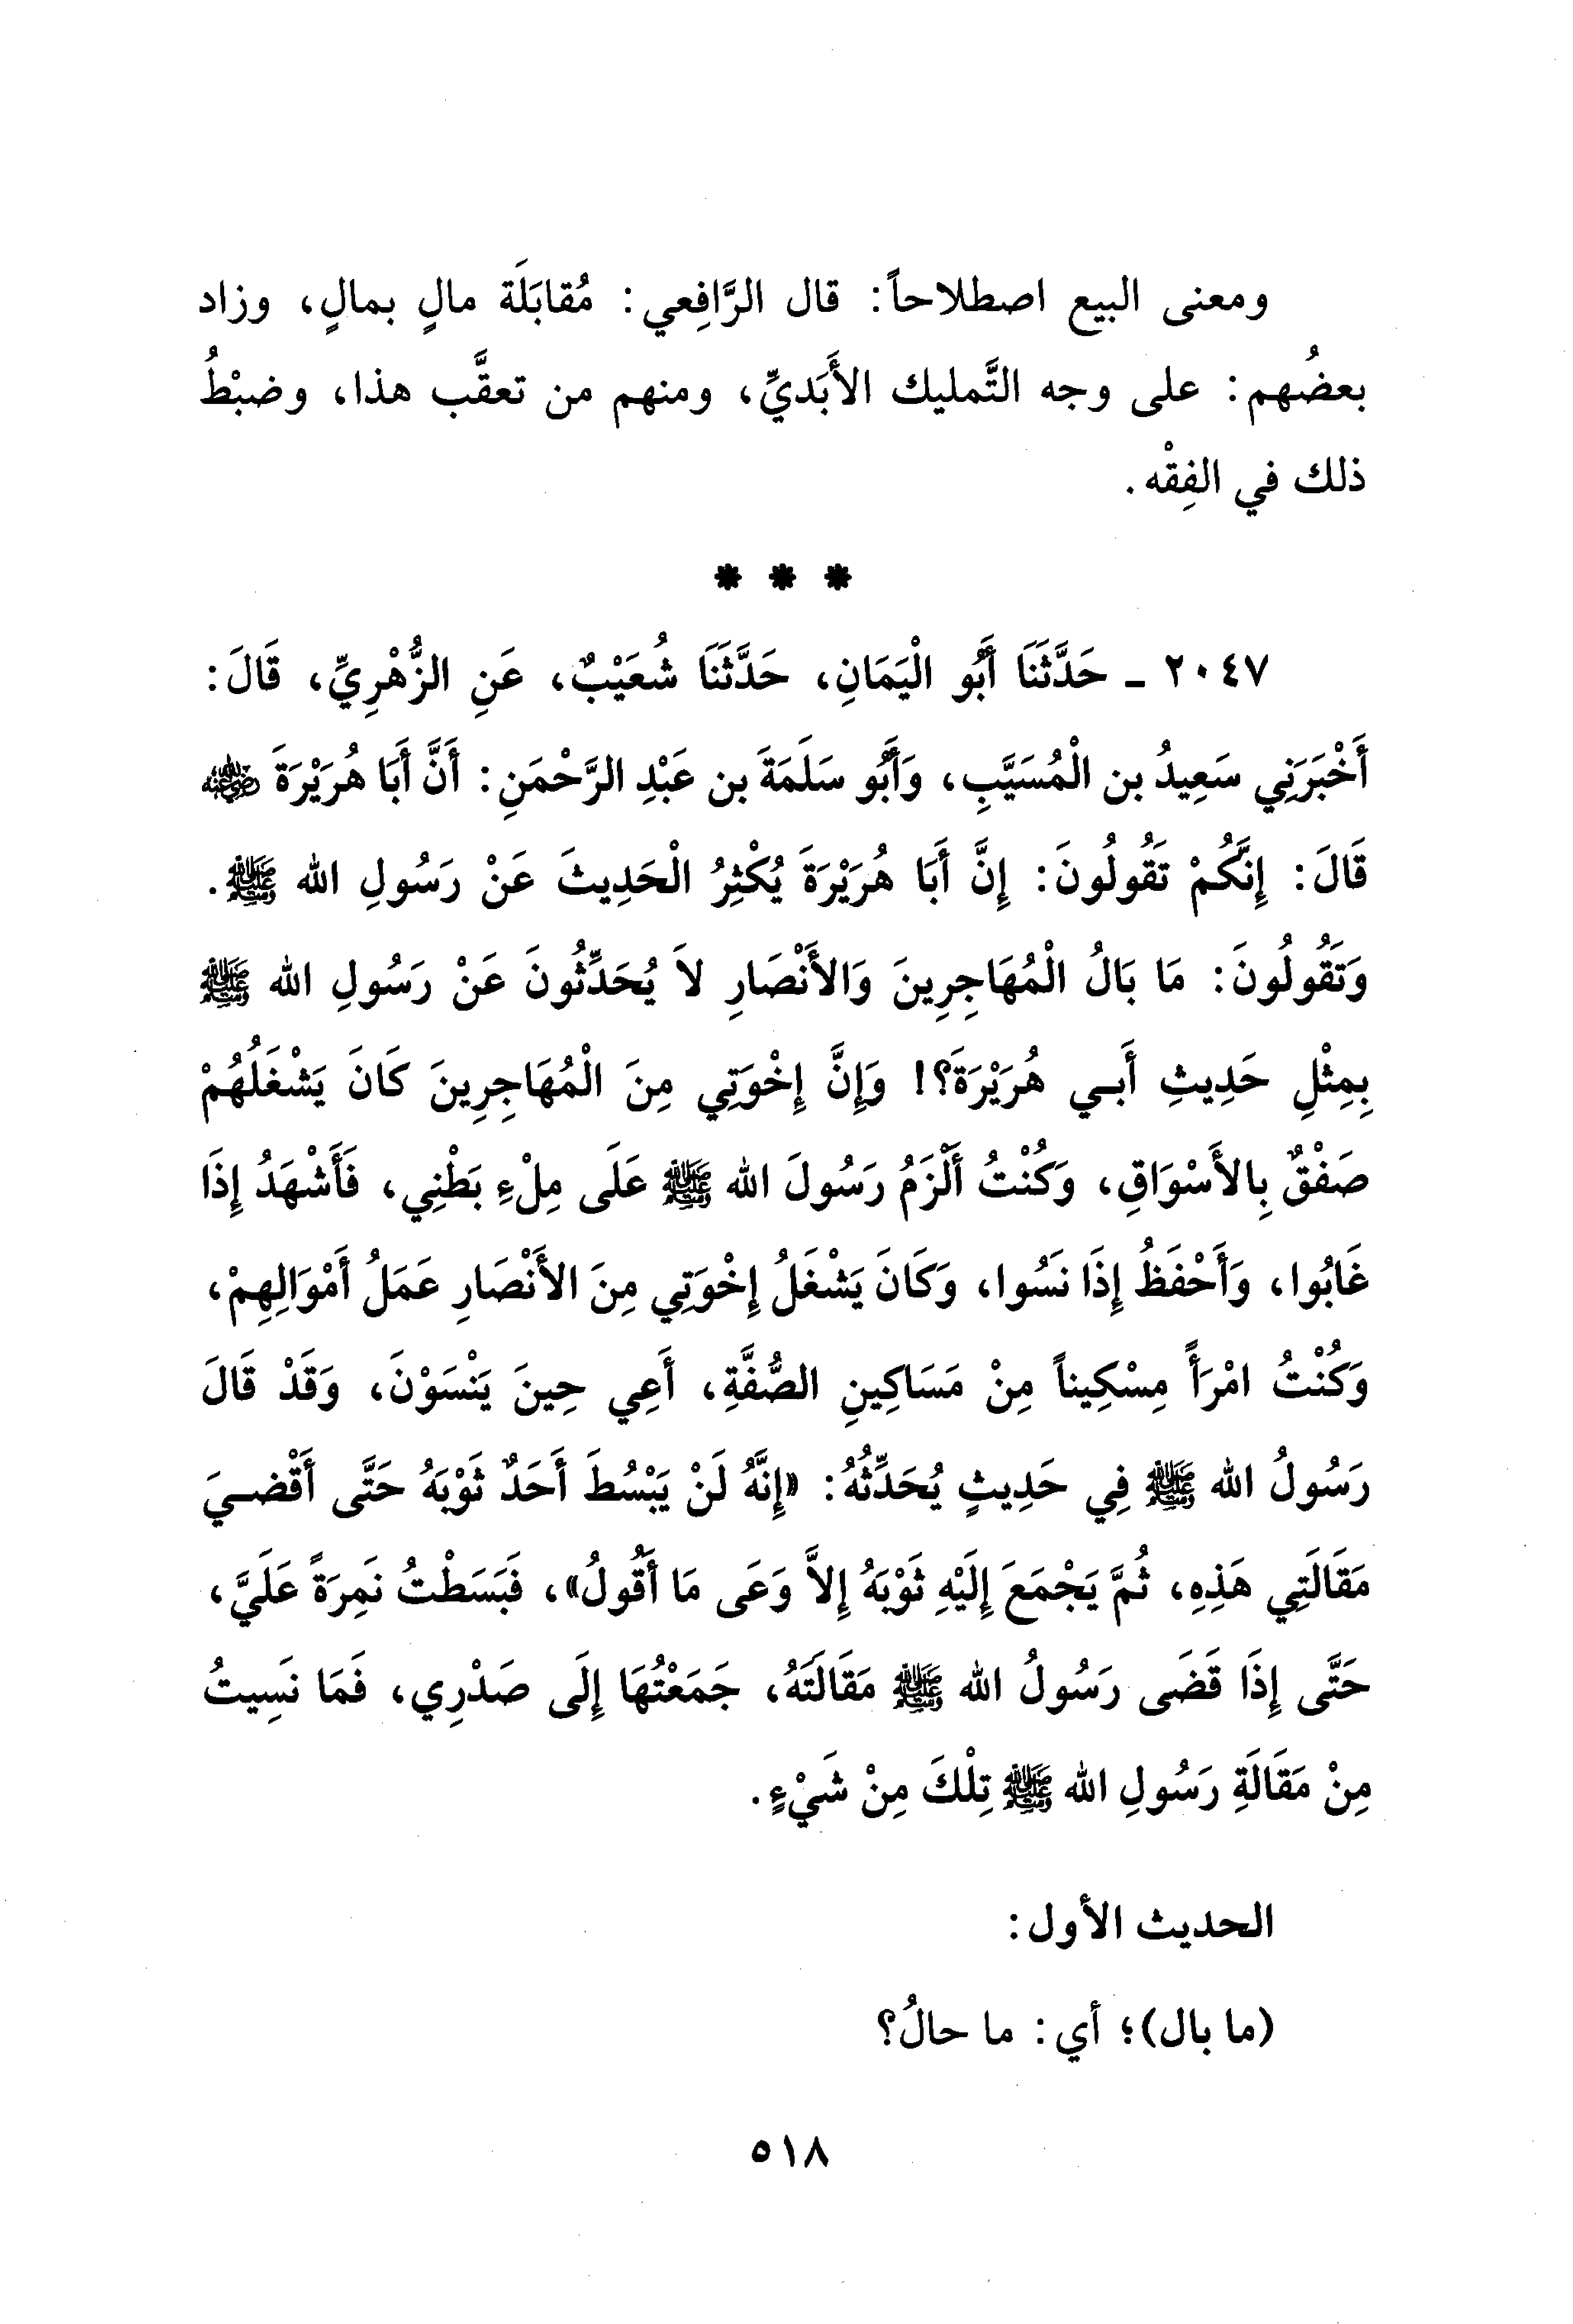 ومعنى البيع اصطلاحاً: قال الرَّافِعي: مُقابَلَة مالٍ بمالٍ، وزاد
بعضُهم: على وجه التَّمليك الأَبَديِّ، ومنهم من تعقَّب هذا، وضبْطُ
ذلك في الفِقْه.
* * *
٢٠٤٧ - حَدَّثَنَا أَبُو الْيَمَانِ، حَدَّثَنَا شُعَيْبٌ، عَنِ الزُّهْرِيِّ، قَالَ:
أَخْبَرَنِي سَعِيدُ بن الْمُسَيَّبِ، وَأَبُو سَلَمَةَ بن عَبْدِ الرَّحْمَنِ: أَنَّ أَبَا هُرَيْرَةَ رضي الله عنه
قَالَ: إِنَّكُمْ تَقُولُونَ: إِنَّ أَبَا هُرَيْرَةَ يُكْثِرُ الْحَدِيثَ عَنْ رَسُولِ الله ﷺ.
وَتَقُولُونَ: مَا بَالُ الْمُهَاجِرِينَ وَالأَنْصَارِ لاَ يُحَدِّثُونَ عَنْ رَسُولِ الله ﷺ
بِمِثْلِ حَدِيثِ أَبــي هُرَيْرَةَ؟! وَإِنَّ إِخْوَتِي مِنَ الْمُهَاجِرِينَ كَانَ يَشْغَلُهُمْ
صَفْقٌ بِالأَسْوَاقِ، وَكُنْتُ أَلْزَمُ رَسُولَ الله ﷺ عَلَى مِلْءِ بَطْنِي، فَأَشْهَدُ إِذَا
غَابُوا، وَأَحْفَظُ إِذَا نَسُوا، وَكَانَ يَشْغَلُ إِخْوَتِي مِنَ الأَنْصَارِ عَمَلُ أَمْوَالِهِمْ،
وَكُنْتُ امْرَأً مِسْكِيناً مِنْ مَسَاكِينِ الصُّفَّةِ، أَعِي حِينَ يَنْسَوْنَ، وَقَدْ قَالَ
رَسُولُ الله ﷺ فِي حَدِيثٍ يُحَدِّثُهُ: «إِنَّهُ لَنْ يَبْسُطَ أَحَدٌ ثَوْبَهُ حَتَّى أَقْضــيَ
مَقَالَتِي هَذِهِ، ثُمَّ يَجْمَعَ إِلَيْهِ ثَوْبَهُ إِلاَّ وَعَى مَا أَقُولُ»، فَبَسَطْتُ نَمِرَةً عَلَيَّ،
حَتَّى إِذَا قَضَى رَسُولُ الله ﷺ مَقَالَتَهُ، جَمَعْتُهَا إِلَى صَدْرِي، فَمَا نَسِيتُ
مِنْ مَقَالَةِ رَسُولِ الله ﷺ تِلْكَ مِنْ شَيْءٍ.
الحديث الأول:
(ما بال)؛ أي: ما حالُ؟
٥١٨